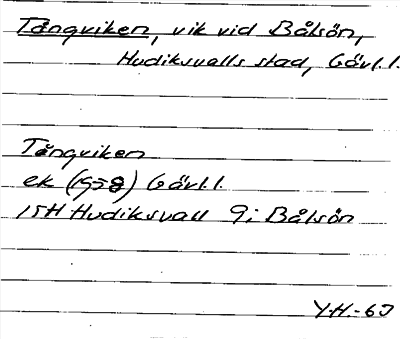 Tångviken, vik vid Bålsön,
Hudiksvalls stad, Gävl.l.
Tångviken
ek (1958) Gävl.l.
15H Hudiksvall 9i Bålsön
Y.H.-63